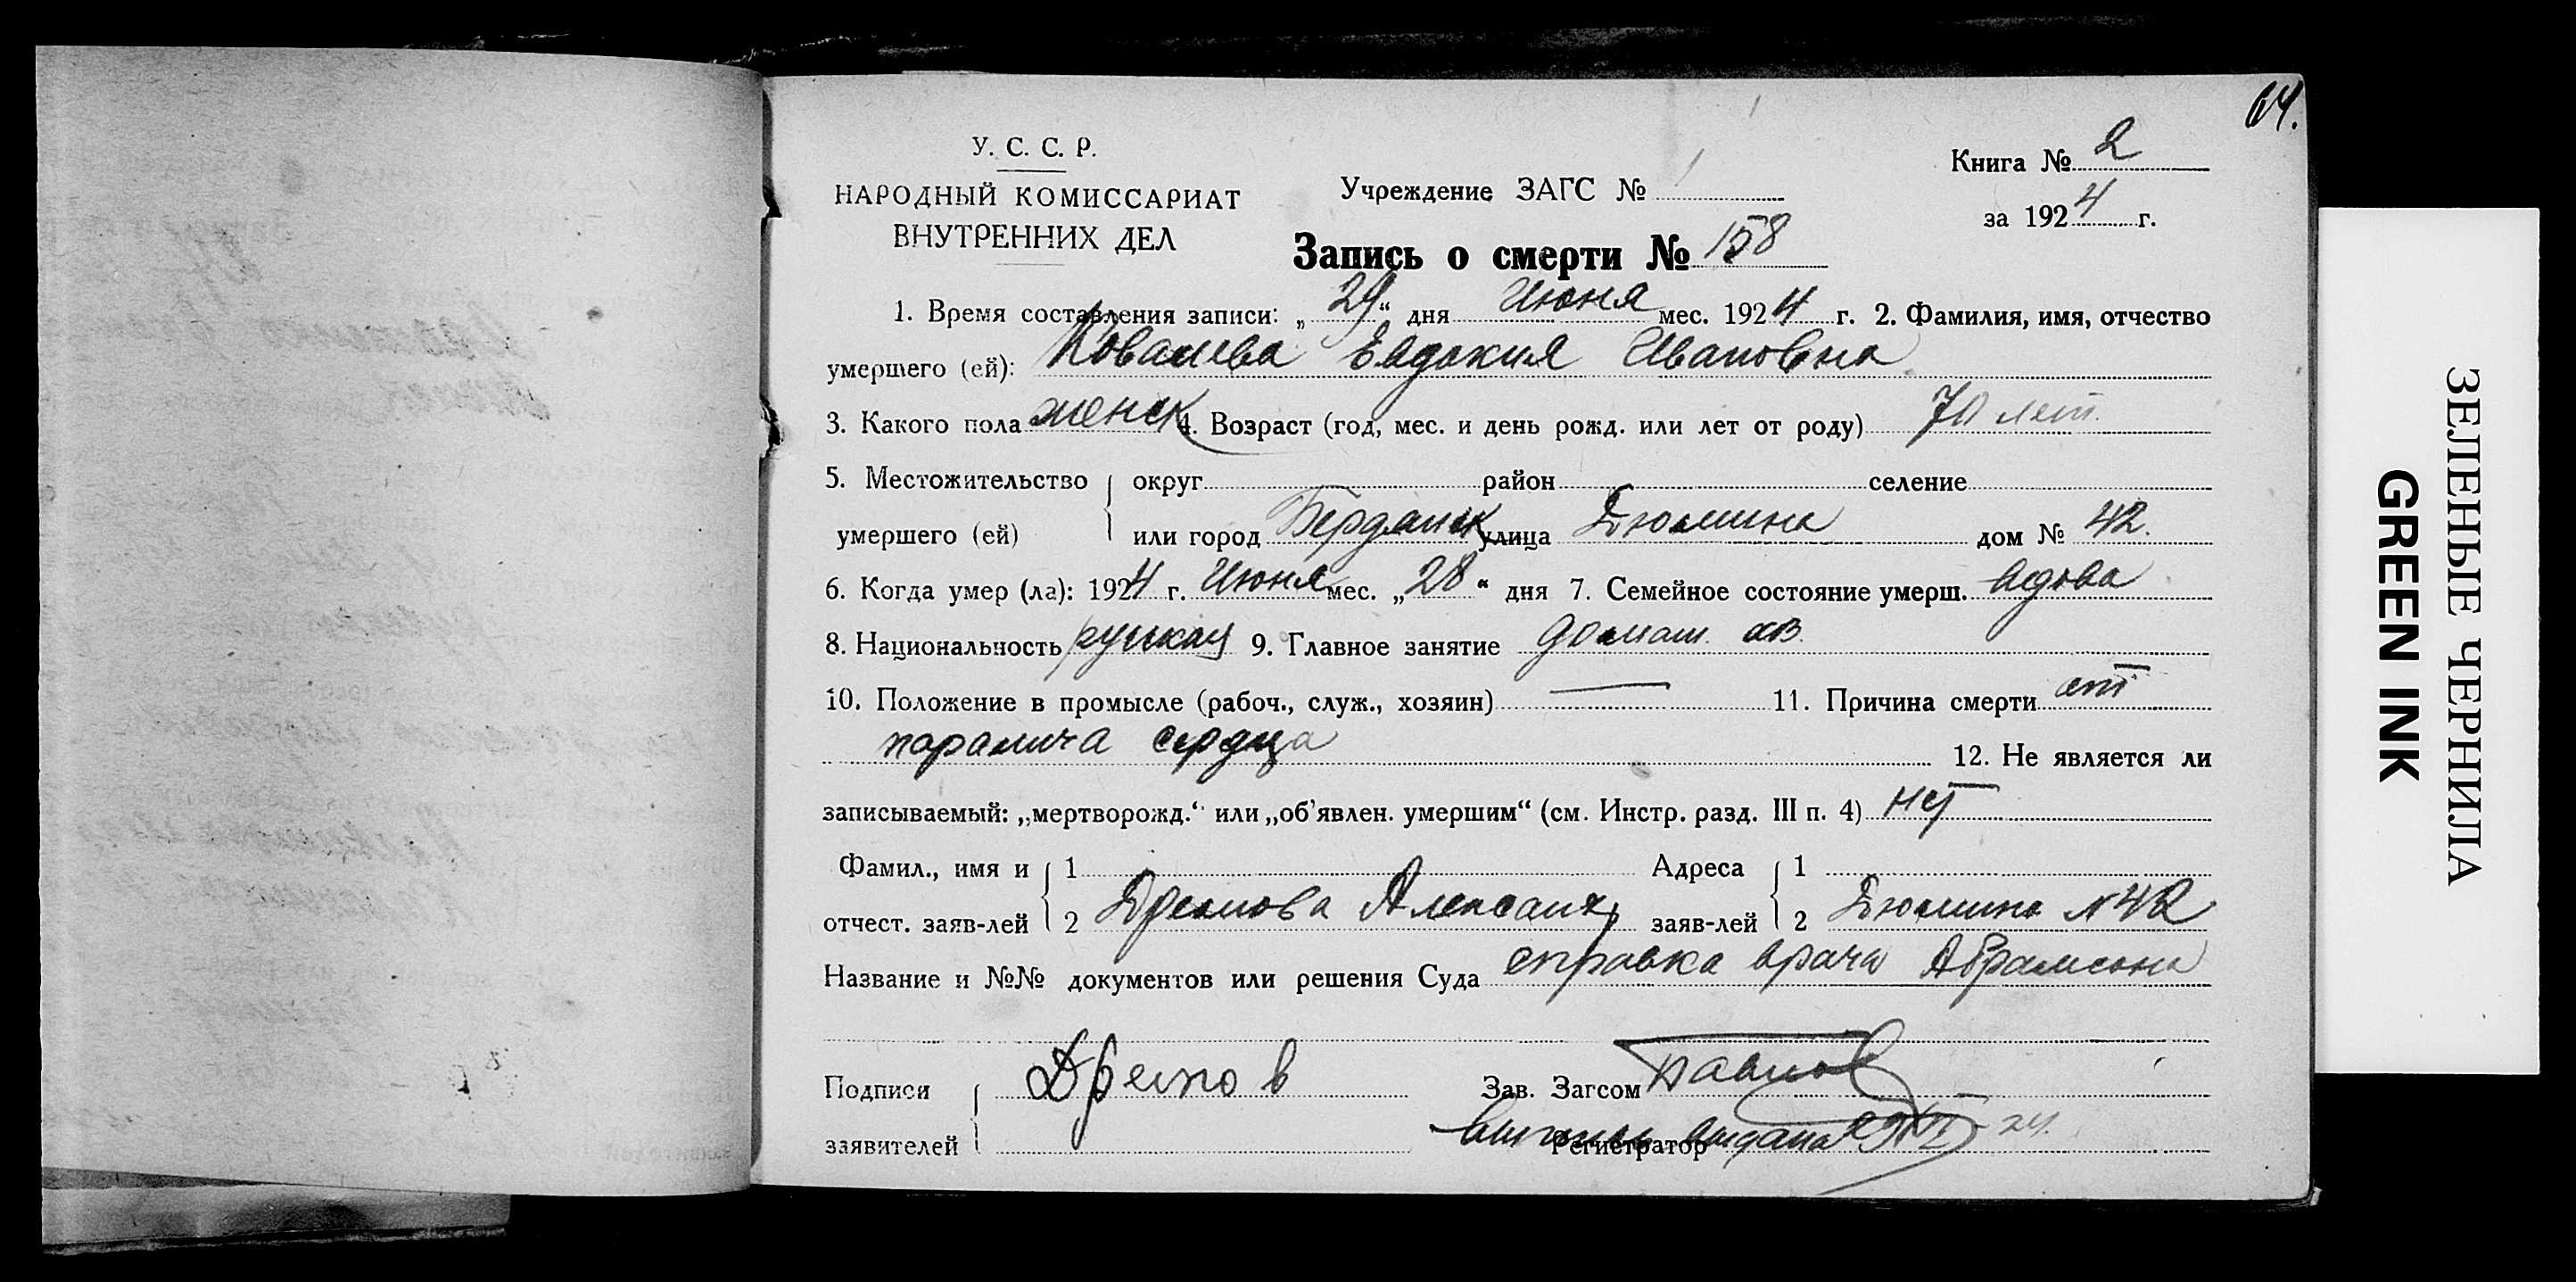 64.
У. С. С. Р.
НАРОДНЫЙ КОМИССАРИАТ
ВНУТРЕННИХ ДЕЛ
Учреждение ЗАГС №
Книга № 2
за 1924 г.
Запись о смерти № 158
1. Время составления записи: „29“ дня Июня мес. 1924 г. 2. Фамилия, имя, отчество
умершего (ей): Ковалева Евдокия Ивановна
3. Какого пола женск 4. Возраст (год, мес. и день рожд. или лет от роду) 70 лет.
5. Местожительство округ район селение
умершего (ей) или город Бердянск улица Дюмина дом № 42.
6. Когда умер (ла): 1924 г. Июня мес. „28“ дня 7. Семейное состояние умерш. вдова
8. Национальность русская 9. Главное занятие домаш. хоз.
10. Положение в промысле (рабоч., служ., хозяин) — 11. Причина смерти от
паралича сердца 12. Не является ли
записываемый: „мертворожд.“ или „об'явлен. умершим“ (см. Инстр. разд. III п. 4) нет
Фамил., имя и 1 Адреса 1
отчест. заяв-лей 2 Александр заяв-лей 2 Дюмина № 42
Название и №№ документов или решения Суда справка врача Абрамсона
Подписи Зав. Загсом Павлов
заявителей Регистратор выдана 29/VI-24.
ЗЕЛЕНЫЕ ЧЕРНИЛА
GREEN INK